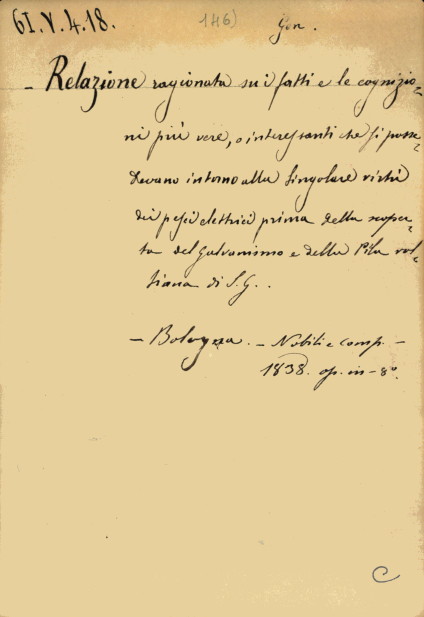 6I.V.4.18.
146)
Gen.
- Relazione ragionata su i fatti e le cognizio=
ni più vere, o interessanti che si posse=
devano intorno alla singolare virtù
dei pesci elettrici prima della scoper=
ta del Galvanismo e della Pila vol=
tiana di S. G. .
- Bologna. - Nobili e comp. -
1838. op. in-8º.
C